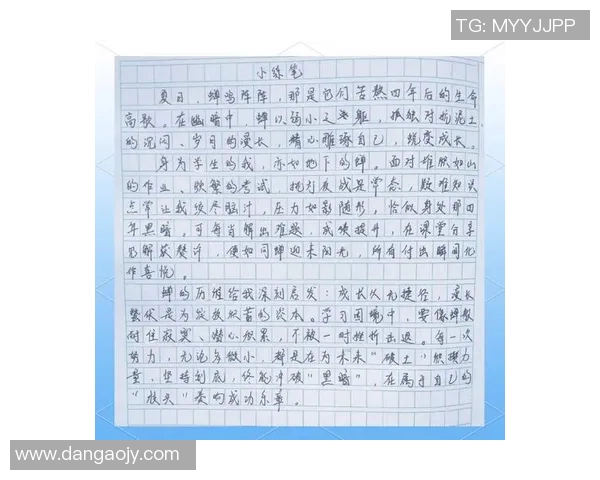 TG: MYYJJPP
小练笔
夏日，蝉鸣阵阵，那是它们苦熬四年后的生命
高歌。在幽暗中，蝉以弱小之躯，孤独对抗泥土
的沉闷、岁月的漫长，精心雕琢自己，蜕变成长。
身为学生的我，亦如地下的蝉。面对堆积如山
的作业、频繁的考试，挑灯夜战是常态，疑难知识
点常让我绞尽脑汁，压力如影随形，恰似身处那四
年黑暗。可每当解出难题，成绩提升，在课堂分享
见解获赞许，便如同蝉迎来阳光，所有付出瞬间化
作喜悦。
蝉的历程给我深刻启发：成长从无捷径，漫长
蛰伏是为发歌积蓄的资本。学习困境中，要像蝉般
耐住寂寞、潜心积累，不被一时挫折击退。每一次
努力，无论多微小，都是在为未来“破土”积攒力
量，坚持到底，终能冲破“黑暗”，在属于自己的
“枝头”奏响成功乐章。
www.dangaojy.com